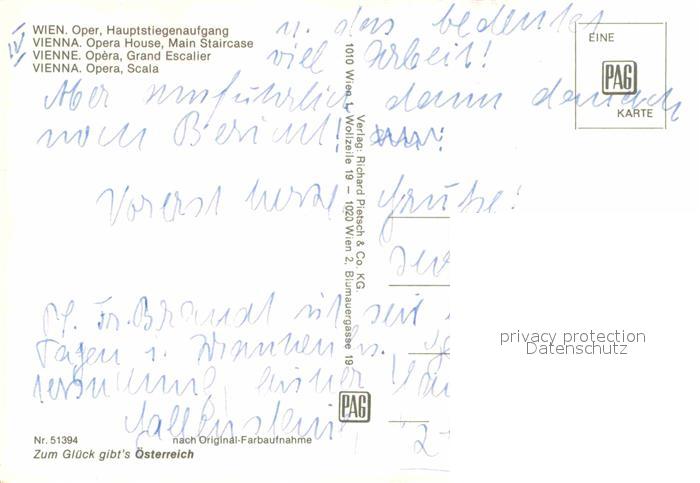 WIEN. Oper, Hauptstiegenaufgang
VIENNA. Opera House, Main Staircase
VIENNE. Opèra, Grand Escalier
VIENNA. Opera, Scala
u. das bedeutet
viel Arbeit!
Aber ausführlich dann danach
noch Bericht!
Vorerst herzl Grüße!
Fr. Brandt ist seit
Tagen i. Krankenhs.
einer
Gallenstein
EINE
PAG
KARTE
Verlag: Richard Pietsch & Co. KG.
1010 Wien 1, Wollzeile 19 – 1020 Wien 2, Blumauergasse 19
PAG
privacy protection
Datenschutz
Nr. 51394 nach Original-Farbaufnahme
Zum Glück gibt's Österreich